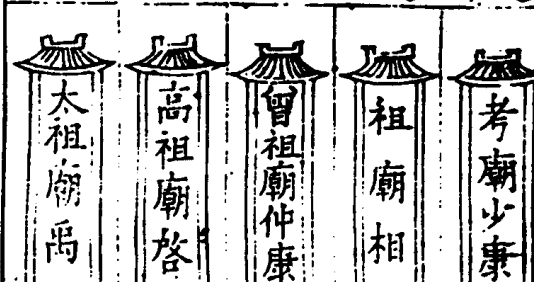 考廟少康
祖廟相
曾祖廟仲康
高祖廟啓
太祖廟禹